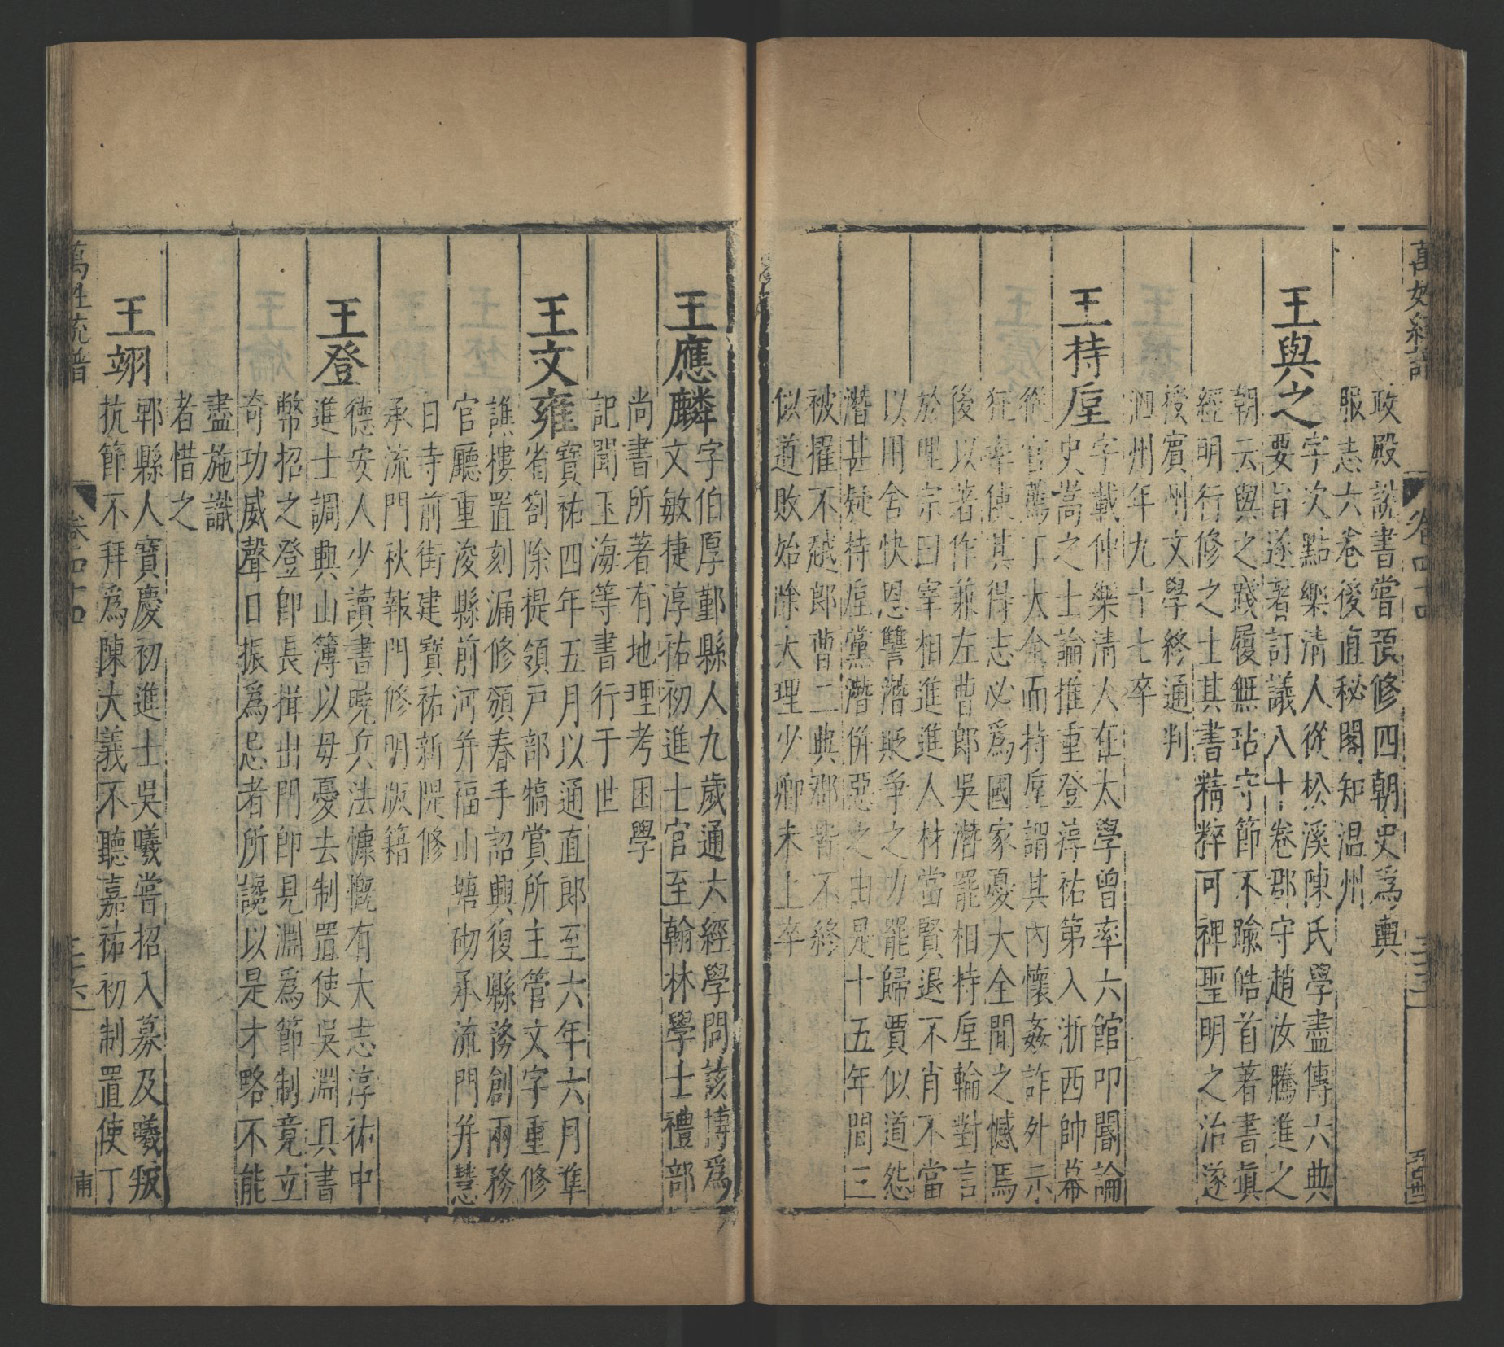 萬姓統譜
卷四十四
政殿說書嘗預修四朝史爲輿
服志六卷後直秘閣知温州
王與之
字次點樂清人從松溪陳氏學盡傳六典
要旨遂著訂議八十卷郡守趙汝騰進之
朝云與之踐履無玷守節不踰皓首著書眞
經明行修之士其書精粹可裨聖明之治遂
授賓州文學終通判
泗州年九十七卒
王持垕
字載仲樂清人在太學曾率六館叩閽論
史嵩之士論推重登淳祐第入浙西帥幕
從官薦丁大全而持垕謂其內懷姦詐外示
狂率使其得志必爲國家憂大全聞之憾焉
後以著作兼左曹郎吳潛罷相持垕輪對言
於理宗曰宰相進進人材當賢退不肖不當
以用舍快恩讐潛貶爭之力罷歸賈似道怨
潛甚疑持垕黨潛併惡之由是十五年間三
被擢不越郎曹二典郷郡不終
似道敗始除大理少卿未上卒
王應麟
字伯厚鄞縣人九歲通六經學問該博爲
文敏捷淳祐初進士官至翰林學士禮部
尚書所著有地理考困學
記聞玉海等書行于世
王文雍
寶祐四年五月以通直郎至六年六月準
省劄除提領戶部犒賞所主管文字重修
譙樓置刻漏修頒春手詔興復縣務創兩務
官廳重浚縣前河并福山塘砌承流門并慧
日寺前街建寶祐新隄修
承流門秋報門修明版籍
王登
德安人少讀書曉兵法慷慨有大志淳祐中
進士調興山簿以母憂去制置使吳淵具書
幣招之登卽長揖出門卽見淵爲節制竟立
奇功威聲日振爲忌者所讒以是才略不能
盡施識
者惜之
王翊
郫縣人寶慶初進士吳曦嘗招入幕及曦叛
抗節不拜爲陳大義不聽嘉祐初制置使丁
萬姓統譜
卷四十四